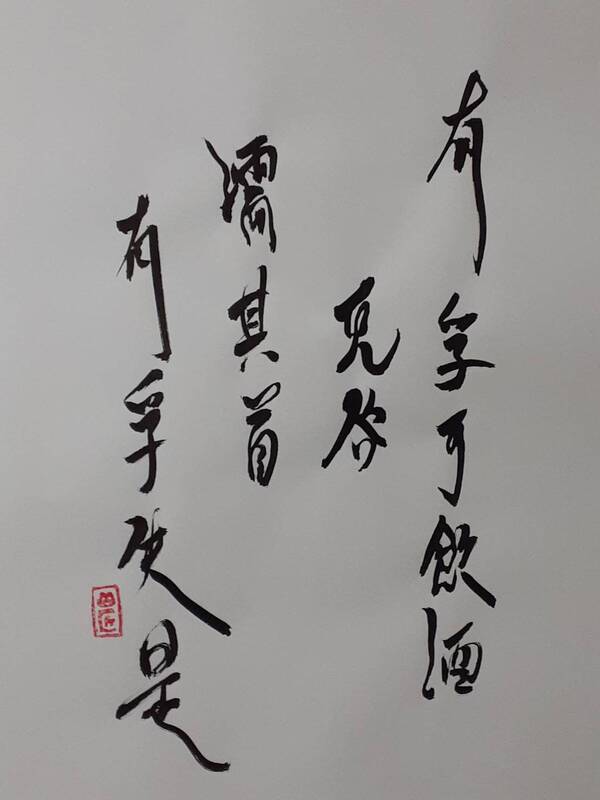 有孚于飲酒
无咎
濡其首
有孚失是